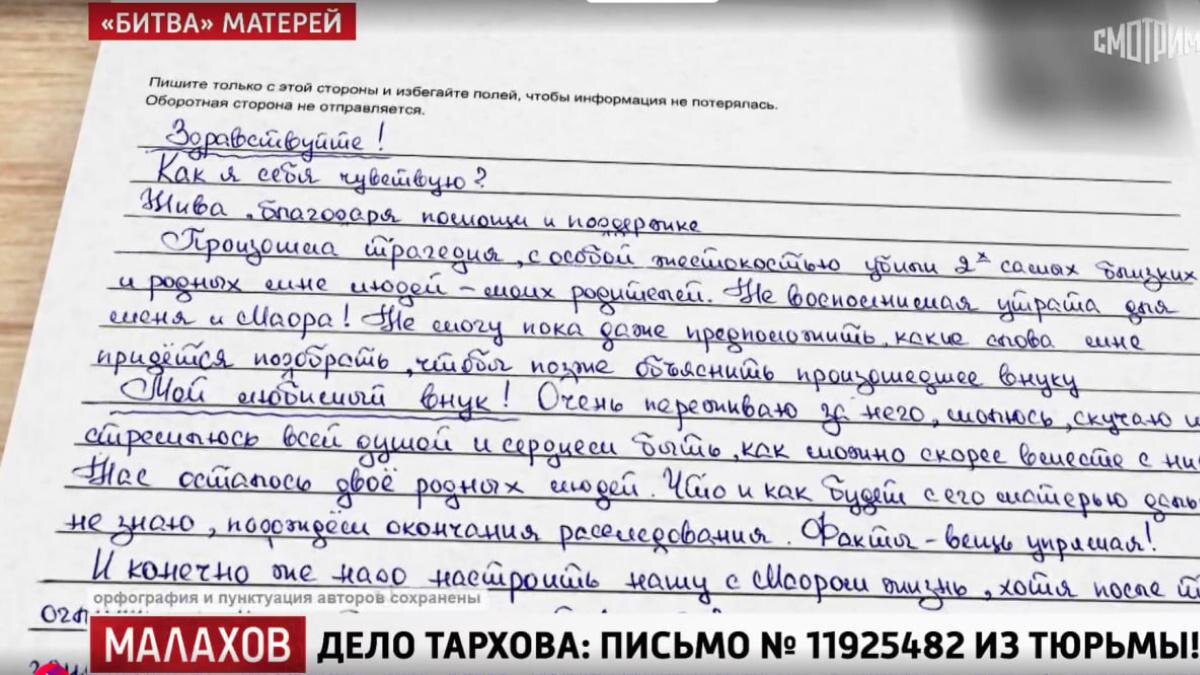 «БИТВА» МАТЕРЕЙ
СМОТРИМ
Пишите только с этой стороны и избегайте полей, чтобы информация не потерялась.
Оборотная сторона не отправляется.
Здравствуйте!
Как я себя чувствую?
Жива, благодаря помощи и поддержке
Произошла трагедия, с особой жестокостью убили 2х самых близких
и родных мне людей – моих родителей. Не восполнимая утрата для
меня и Маора! Не могу пока даже предположить, какие слова мне
придётся подобрать, чтобы позже объяснить произошедшее внуку
Мой любимый внук! Очень переживаю за него, молюсь, скучаю и
стремлюсь всей душой и сердцем быть, как можно скорее вместе с ни
Нас осталось двоё родных людей. Что и как будет с его матерью
не знаю, подождём окончания расследования. Факты – вещь упрямая!
И конечно же надо настроить нашу с Маором жизнь, хотя после т
орфография и пунктуация авторов сохранены
МАЛАХОВ
ДЕЛО ТАРХОВА: ПИСЬМО № 11925482 ИЗ ТЮРЬМЫ!